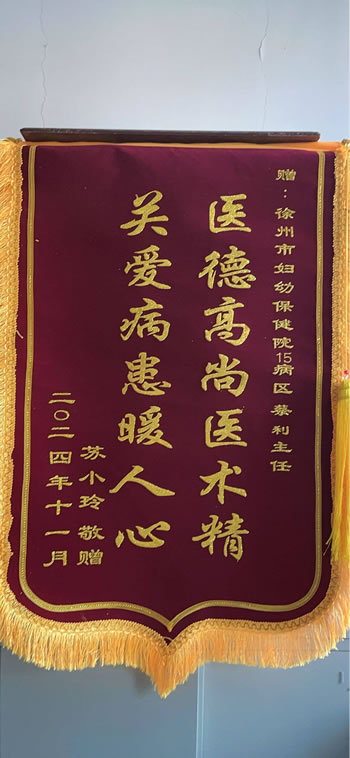 赠：徐州市妇幼保健院15病区 蔡利主任
医德高尚医术精
关爱病患暖人心
苏小玲 敬赠
二〇二四年十一月